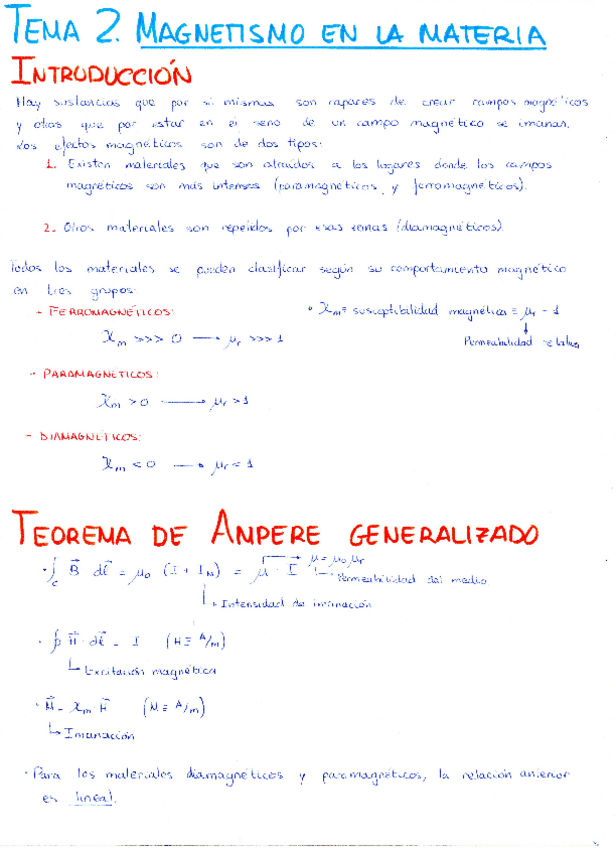 TEMA 2. MAGNETISMO EN LA MATERIA
INTRODUCCIÓN
Hay sustancias que por si mismas son capaces de crear campos magnéticos
y otras que por estar en el seno de un campo magnético se imanan.
Los efectos magnéticos son de dos tipos:
1. Existen materiales que son atraídos a los lugares donde los campos
magnéticos son más intensos (paramagnéticos y ferromagnéticos).
2. Otros materiales son repelidos por esas zonas (diamagnéticos).
Todos los materiales se pueden clasificar según su comportamiento magnético
en tres grupos:
- FERROMAGNÉTICOS:
• χm ≡ susceptibilidad magnética ≡ μr - 1
χm >>> 0 → μr >>> 1
Permeabilidad relativa
- PARAMAGNÉTICOS:
χm > 0 → μr > 1
- DIAMAGNÉTICOS:
χm < 0 → μr < 1
TEOREMA DE AMPERE GENERALIZADO
• ∫c B⃗ dl⃗ = μ0 (I + IM) = μ · I → μ = μ0 μr
Permeabilidad del medio
Intensidad de imanación
• ∮ H⃗ · dl⃗ = I (H ≡ A/m)
Excitación magnética
• M⃗ = χm H⃗ (M ≡ A/m)
Imanación
• Para los materiales diamagnéticos y paramagnéticos, la relación anterior
es lineal.